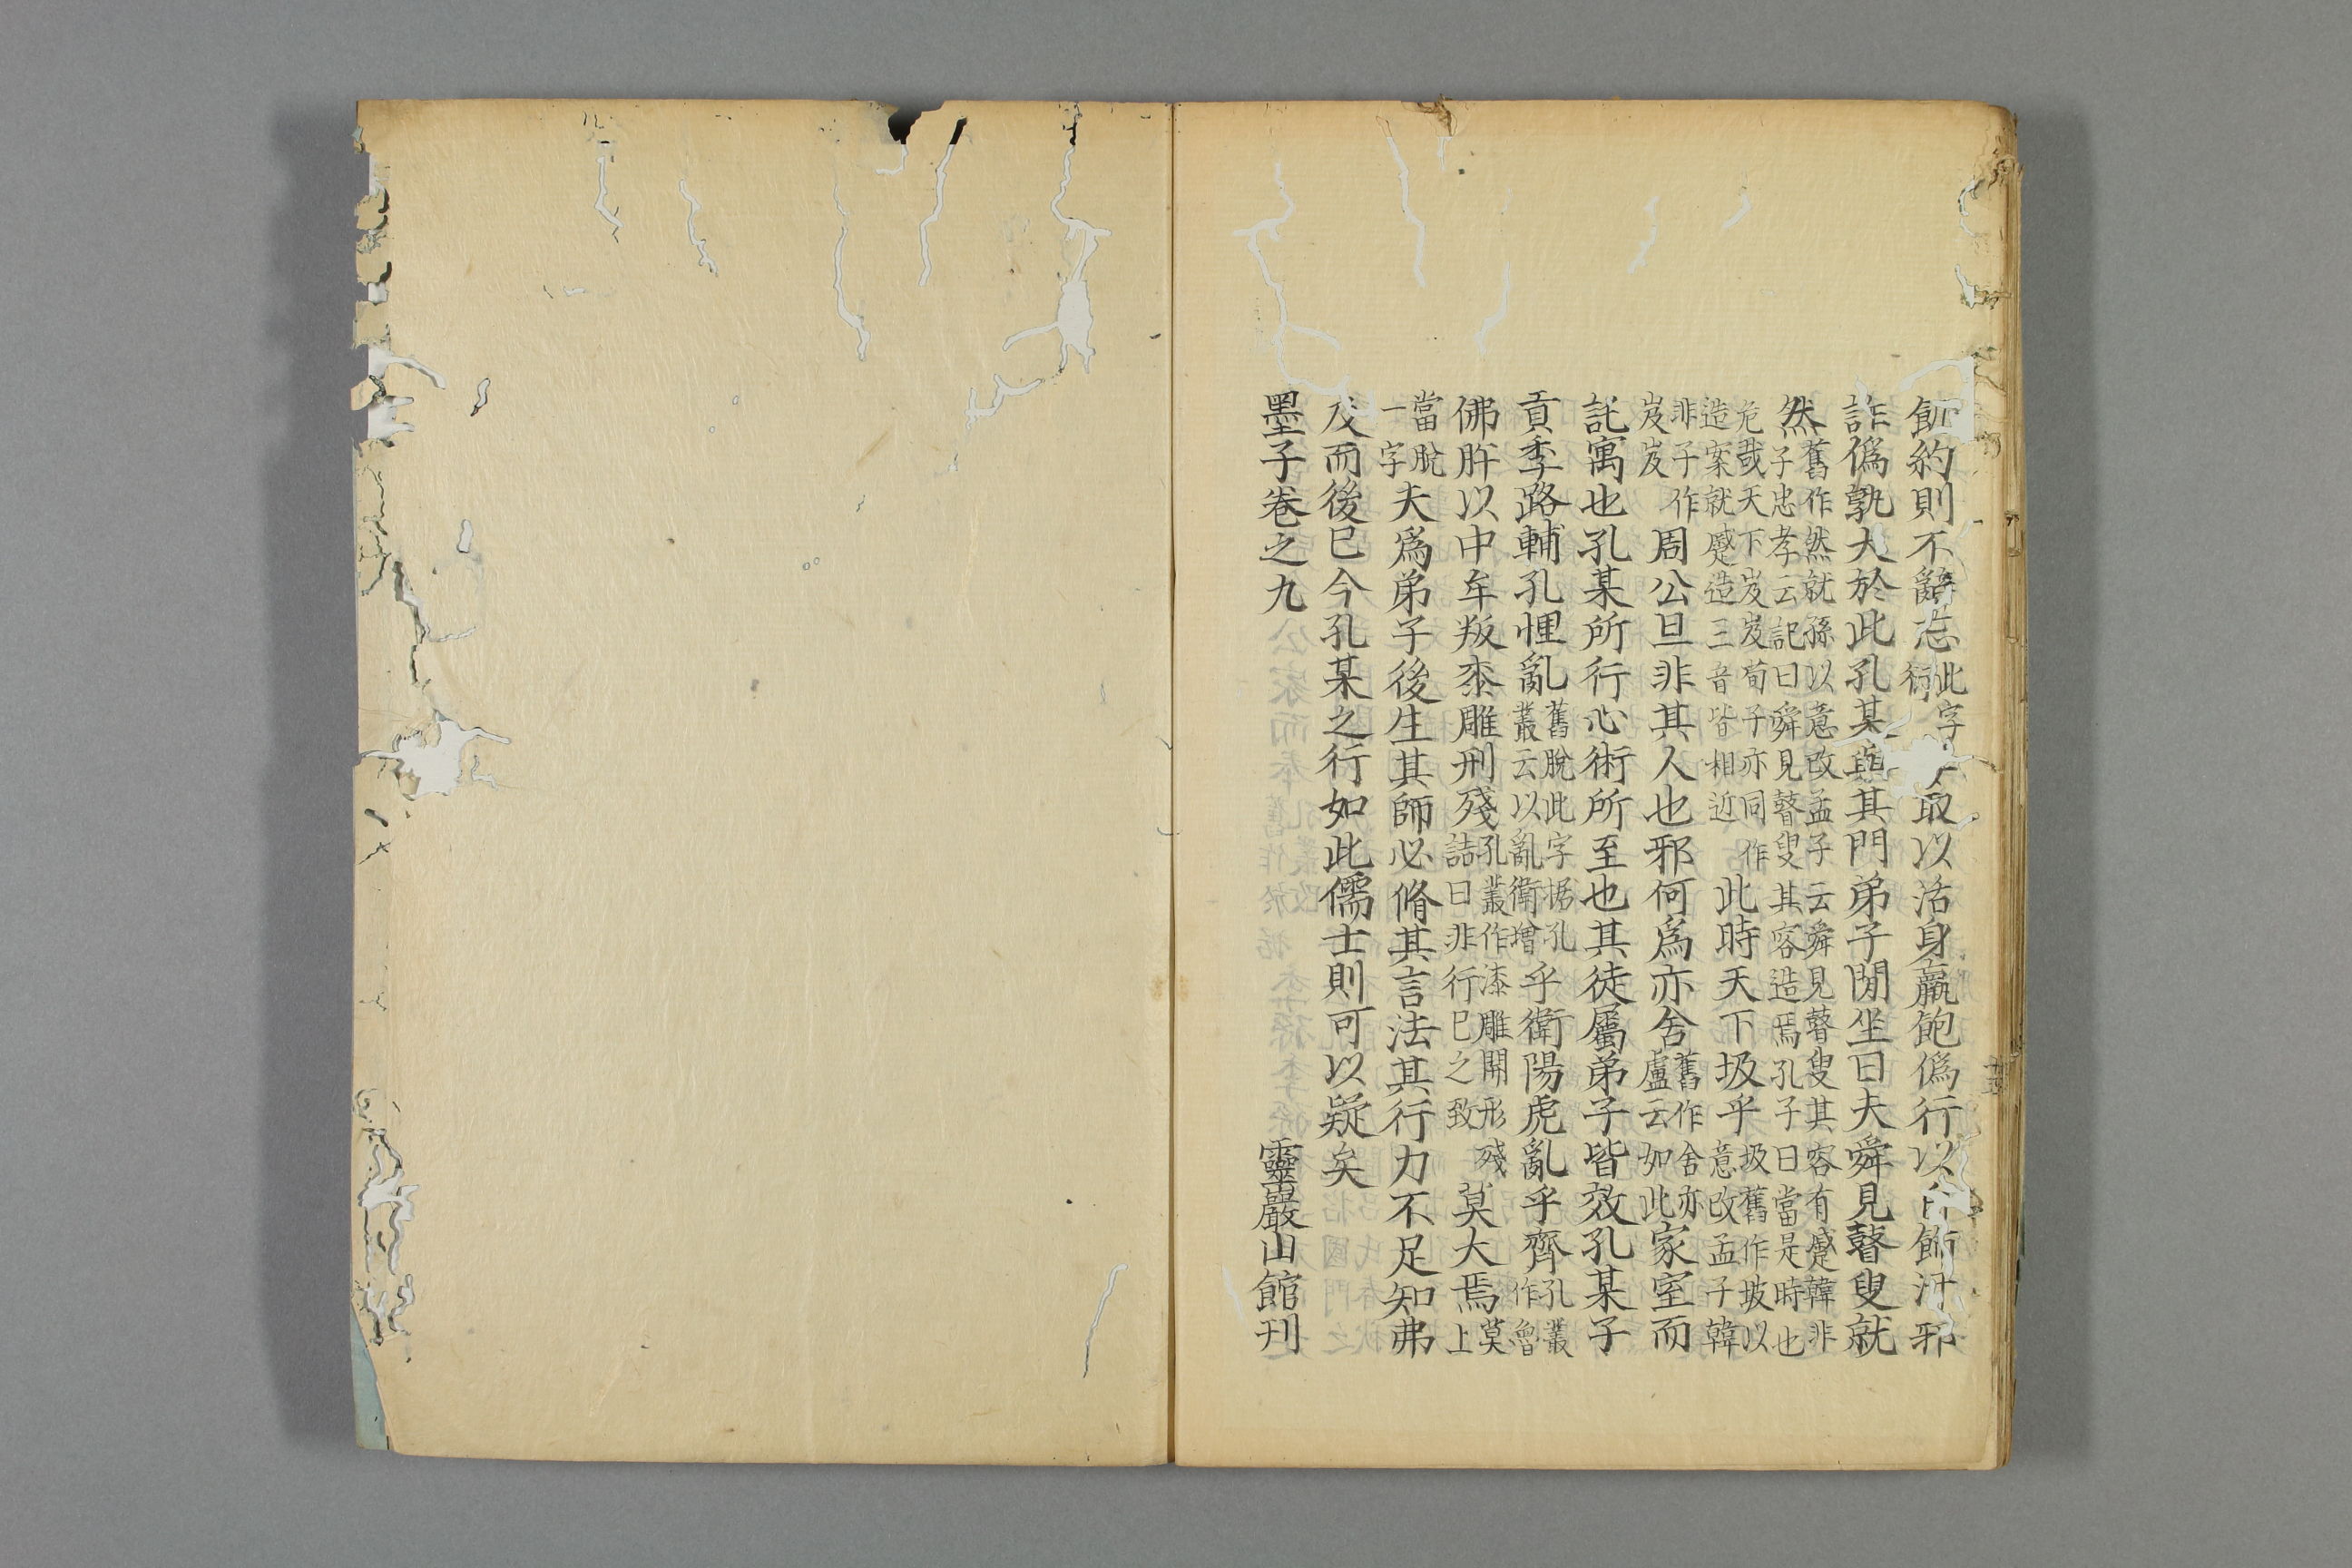 飢約則不辭忘此字衍妄取以活身羸飽僞行以自飾汙邪
詐僞孰大於此孔某與其門弟子閒坐曰夫舜見瞽叟就
然舊作然就孫以意改孟子云舜見瞽叟其容有蹙韓非子忠孝云記曰舜見瞽叟其容造焉孔子曰當是時也
危哉天下岌岌荀子亦同作造案就蹙造三音皆相近此時天下圾乎圾舊作坡以意改孟子韓
非子作岌岌周公旦非其人也邪何爲亦舍舊作舍亦盧云如此家室而
託寓也孔某所行心術所至也其徒屬弟子皆效孔某子
貢季路輔孔悝亂舊脫此字据孔叢云以亂衛增乎衛陽虎亂乎齊孔叢作魯
佛肸以中牟叛桼雕刑殘孔叢作漆雕開形殘詰曰非行巳之致莫大焉莫上
當脫一字夫爲弟子後生其師必脩其言法其行力不足知弗
及而後巳今孔某之行如此儒士則可以疑矣
墨子卷之九 靈巖山館刊